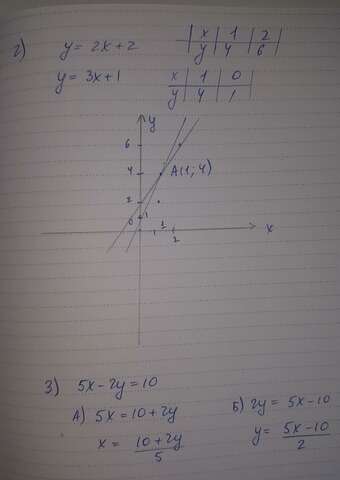 2) y = 2x + 2
x 1 2
y 4 6
y = 3x + 1
x 1 0
y 4 1
y
6
4 A(1; 4)
2
1
0 1 2 x
3) 5x - 2y = 10
А) 5x = 10 + 2y
x = (10 + 2y)/5
Б) 2y = 5x - 10
y = (5x - 10)/2